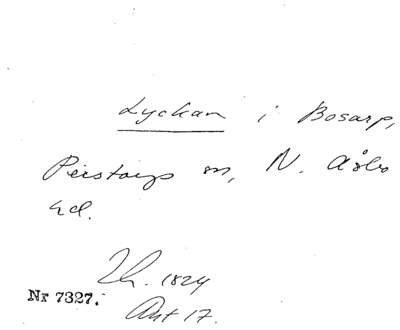 Lyckan i Bosarp,
Perstorps sn, N. Åsbo
hd.
Th. 1824
Nr 7327.
Akt 17.